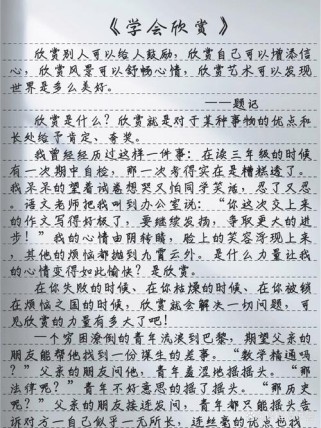 《学会欣赏》
欣赏别人可以给人鼓励，欣赏自己可以增添信
心，欣赏风景可以舒畅心情，欣赏艺术可以发现
世界是多么美好。
——题记
欣赏是什么？欣赏就是对于某种事物的优点和
长处给予肯定、夸奖。
我曾经经历过这样一件事：在读三年级的时候
有一次期中自检，那一次考得实在是糟糕透了。
我呆呆的望着试卷想哭又怕同学笑话，忍了又忍
。语文老师把我叫到办公室说：“你这次交上来
的作文写得好极了，要继续发扬，争取更大的进
步！”我的心情由阴转晴，脸上的笑容浮现上来
，其他的烦恼都抛到九霄云外。是什么力量让我
的心情变得如此愉快？是欣赏。
在你失败的时候、在你枯燥的时候、在你被锁
在烦恼之国的时候，欣赏就会解决一切问题，可
见欣赏的力量有多大了吧！
一个穷困潦倒的青年流浪到巴黎，期望父亲的
朋友能帮他找到一份谋生的差事。“数学精通吗
？”父亲的朋友问他，青年羞涩地摇摇头。“那
法律呢？”青年不好意思的摇了摇头。“那历史
呢？”父亲的朋友接连发问，青年都只能摇头告
诉对方一自己似乎一无所长，连丝毫的优点也找